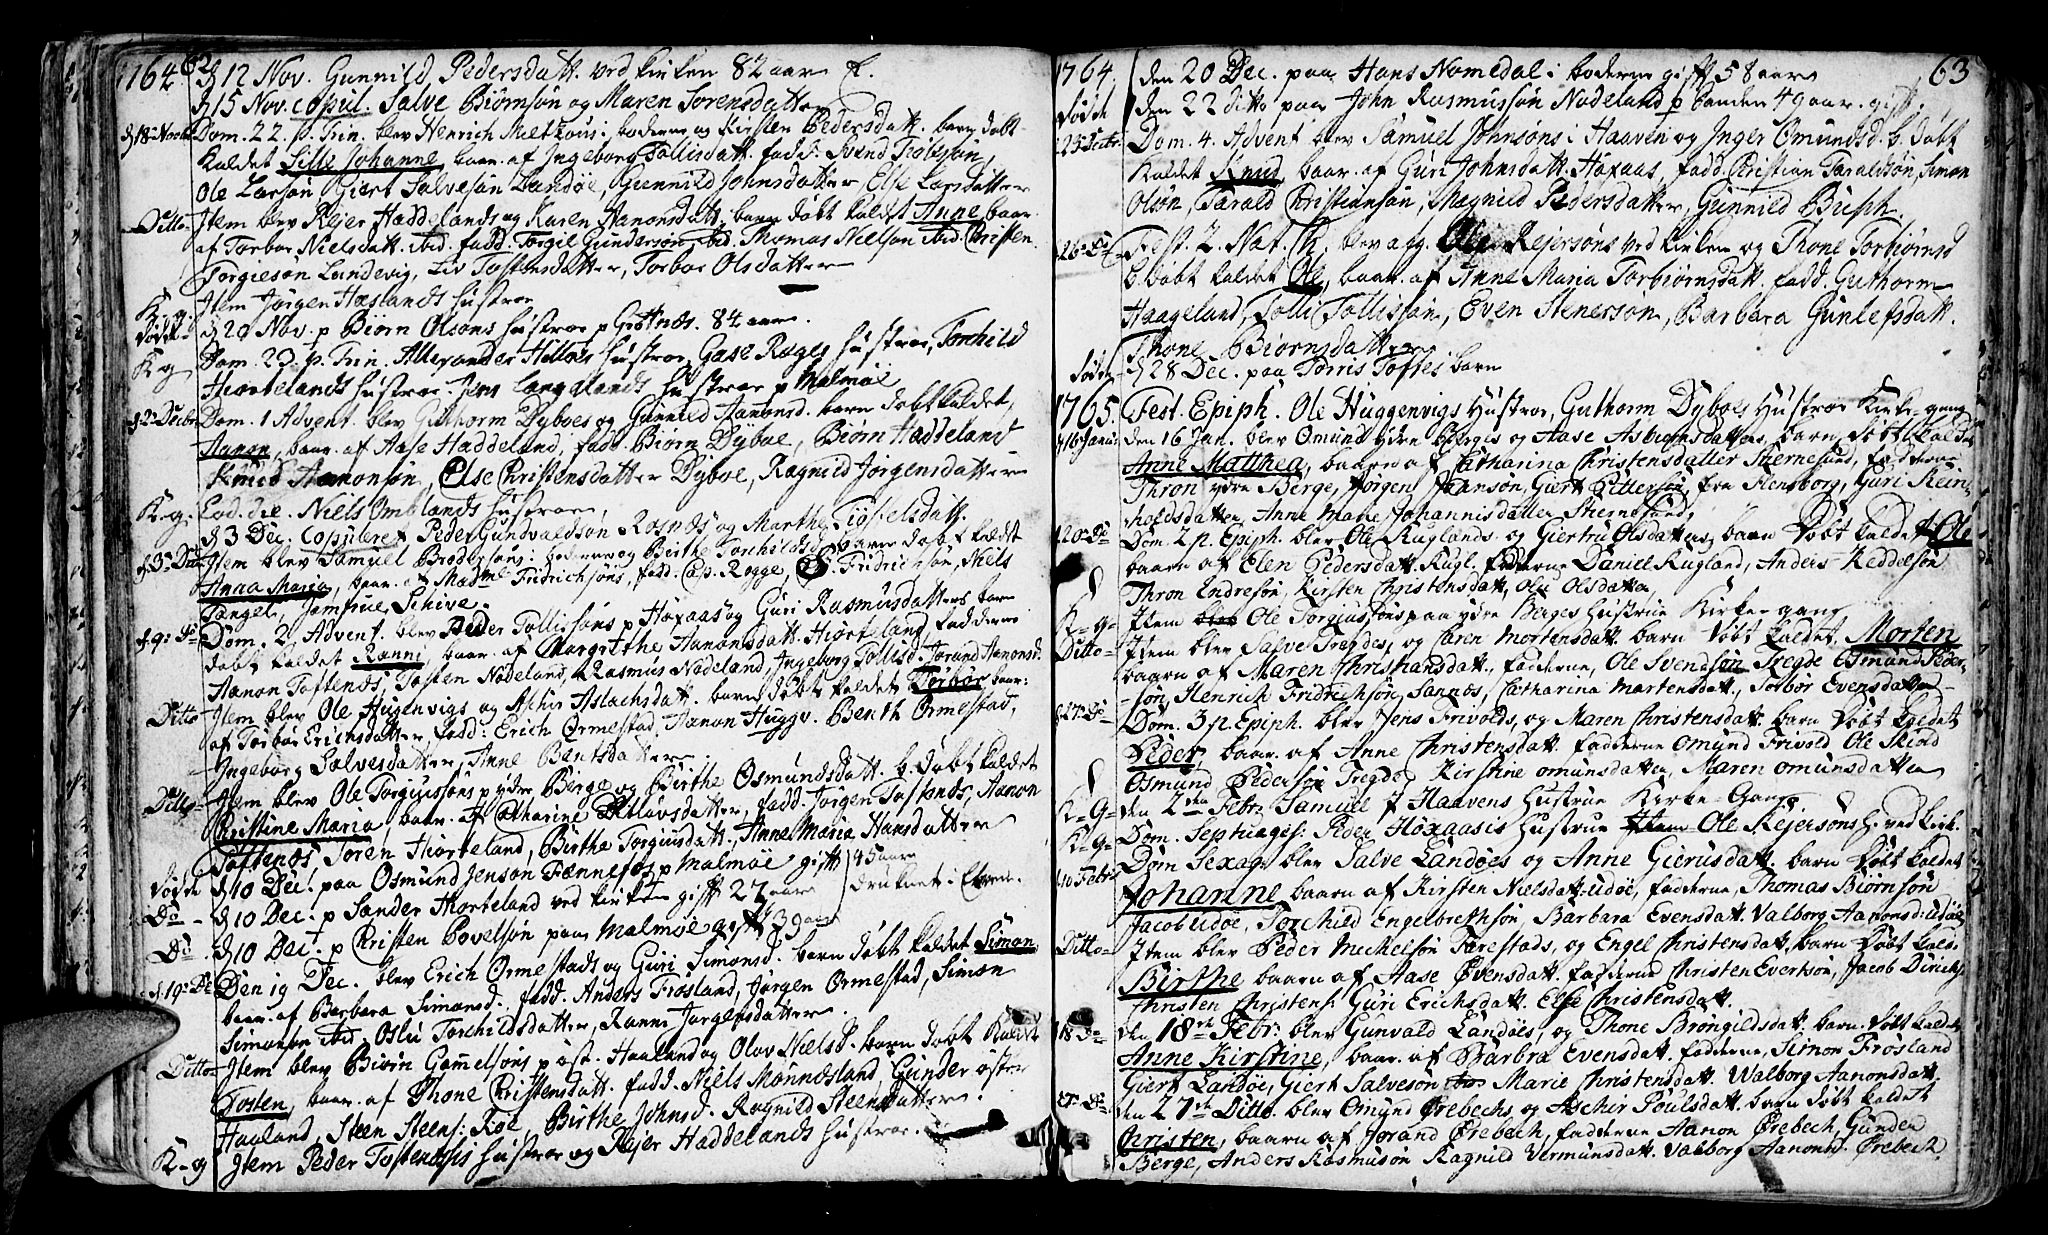 1764 62
d 12 Nov. Gunnild Pedersdatt. ved kirken 82 aar
d 15 Nov. copul. Salve Biørnsøn og Maren Sørensdatter
d 18 Novbr Dom. 22. p. Trin. blev Henrich i boderne og Kirsten Pedersdatt. barn døbt
kaldet Sille Johanne baar. af Ingeborg Tollisdatt. fadd. Svend Jacobsøn,
Ole Larsøn, Giert Salvesøn Landøe, Gunnild Johnsdatter, Else Larsdatter
Ditto Item blev Rejer Haddelands og Karen Aanonsdatt. barn døbt kaldet Anne baar.
af Torbor Nielsdatt. ibid. fadd. Torgil Gundersøn ibid. Thomas Nielsøn ibid. Christen
Torgiesøn Landevig, Liv Tostensdatter, Torbor Olsdatter
K-g. Item Jørgen Haslands hustroe
døde d 20 Nov. p Biørn Olsøns hustroe p Grøtnæs. 84 aar.
K-g Dom. 23. p. Trin. Allexander Hilløes hustroe, Gase Røges hustroe, Torchild
Hiortelands hustroe. Jens Langelands hustroe p Malmøe
d 2 Decbr. Dom. 1 Advent. blev Guthorm Dyboes og Gunnild Aanonsd. barn døbt kaldet,
Aanon, baar. af Aase Haddeland, fadd. Biørn Dyboe, Biørn Haddeland
Knud Aanonsøn, Else Christensdatter Dyboe, Ragnild Jørgensdatter
K-g. Eod. die. Niels Omblands hustroe,
d 3 Dec. copuleret Peder Gundvaldsøn Rosnes og Marthe Tiøstelsdatt.
d. 3 Ditto Item blev Samuel Brodersøns i boderne og Birthe Torchildsd. barn døbt kaldet
Anna Maria, baar. af Madme Fridrichsøns, fadd. Cap. Rogge, Fridrichsøn, Niels
Tangel, Jomfrue Schive.
d. 9. Do Dom. 2. Advent. blev Peder Tollisøns p Høxaas og Guri Rasmusdatters barn
døbt kaldet Ranni, baar. af Margrethe Aanonsdatt. Hiorteland, fadderne
Aanon Toftenes, Tosten Nødeland, Rasmus Nødeland, Ingeborg Tollisd. Jorand Aanonsd.
Ditto Item blev Ole Hugenvigs og Aschir Aslachsdatt. barn døbt kaldet Torbor baar:
af Torbor Erichsdatter, fadd: Erich Ormestad, Aanon Huggv. Benth Ormestad,
Ingeborg Salvesdatter, Anne Bentsdatter
Ditto Item blev Ole Torgiussøns p ydre Berge og Birthe Osmundsdatt. b. døbt kaldet
Christine Maria, baar. af Catharine Ditlavsdatter, fadd. Jørgen Toftenes, Aanon
Toftenes Søren Hiorteland, Birthe Torgiusdatt., Anne Maria Hansdatter
døde d 10 Dec! paa Osmund Jensøn Fænnefos p Malmøe gift 45 aar
Do d 10 Dec. p Sander Hiorteland ved kirken gift 27 aar druknet i Elven.
Do. d 10 Dec. p Christen Povelsøn paa Malmøe gift 39 aar
d. 19 Do Den 19 Dec. blev Erich Ormestads og Guri Simonsd. barn døbt kaldet Simon
baar. af Barbara Simonsd. fadd. Anders Frøsland, Jørgen Ormestad, Simon
Simonsøn ibid. Oslu Torchildsdatter, Ranni Jørgensdatter.
Ditto Item blev Biørn Gamelsøns p øst. Haaland og Olov Nielsd. barn døbt kaldet
Tosten, baar. af Thone Christensdatt. fadd. Niels Monnesland, Gunder østre
Haaland, Steen Steens: Roe, Birthe Johnsd. Ragnild Steensdatter.
K-g Item Peder Tostensøns hustroe og Rejer Haddelands hustroe.
63
1764. den 20 Dec. paa Hans Namedal i boderne gift 58 aar
døde den 22 ditto paa John Rasmussøn Nødeland p Sanden 49 aar. gift.
23 Decbr. Dom. 4. Advent blev Samuel Johnsøns i Haaven og Inger Omundsd. b. døbt
kaldet Knud baar. af Guri Johnsdatt. Høxaas, fadd. Christian Taraldsøn, Simon
Olsøn, Tarald Christiansøn, Magnild Pedersdatter, Gunnild Buph.
26 Do Fest. 2. Nat. Ch. blev agg. Ole Rejersøns ved kirken og Thone Torbiørnsd
b. døbt kaldet Ole, baar. af Anne Maria Torbiørnsdatt. fadd. Guthorm
Haageland, Tolli Tollissøn, Even Stenersøn, Barbara Gunlefsdatt.
Thone Biørnsdatter
døde d 28 Dec. paa Torris Toftes barn
1765. Fest. Epiph. Ole Huggenvigs hustroe, Guthorm Dyboes hustroe Kirke-gang
d 16 Janu: den 16 Jan. blev Omund ydre Bergis og Aase Asbiørnsdatters barn døbt kaldet
Anne Matthea, baaren af Catharina Christensdatter Stiernesund, fadderne
Thron ydre Berge, Jørgen Hansøn, Giert Pittersøn, fra Flensborg, Guri Rein
holdsdatter, Anne Marie Johannisdatter Stiernesund,
20 Do Dom. 2 p. Epiph. blev Ole Ruglands og Giertru Olsdatters barn døbt kaldet Ole
baaren af Elen Pedersdatt. Rugl. fadderne Daniel Rugland, Anders Keddelsøn
Thron Endresøn, Kirsten Christensdatt. Olu Olsdatter
K-g- Item Ole Torgiussøns paa ydre Berges hustrue Kirke-gang
Ditto Item blev Salve Tregdes, og Caren Mortensdatt. barn døbt kaldet. Morten
baaren af Maren Christiansdatt., fadderne, Ole Svendsøn Tregde Osmund Peder-
søn, Henrich Fridrichsøn, Sannes, Catharina Martensdatt., Torbør Evensdatter
27 Do Dom. 3 p. Epiph. blev Jens Frivolds, og Maren Christensdatt. barn døbt kaldet
Peder, baar. af Anne Christensdatt. fadderne Omund Frivold Ole Skind
Osmund Pedersøn Tregde, Kirstine Omunsdatter, Maren Omunsdatter
K-G- den 2den Febr. Samuel i Haavens hustrue Kirke-Gang
K-g- Dom. Septuages: Peder Høxaasis hustrue Item Ole Rejersøns h. ved Kirk.
10 Febr. Dom Sexag: blev Salve Landøes og Anne Gierusdatt. barn døbt kaldet
Johanne baaren af Kirsten Nielsdatt. Udøe, fadderne, Thomas Biørnsøn
Jacob Udøe, Torchild Engelbrethsøn, Barbara Evensdatt. Valborg Aanonsd: Udøe
Ditto Item blev Peder Michelsøn Farestads, og Engel Christensdatt. barn døbt kald.
Birthe baaren af Aase Evensdatt. fadderne Christen Evertsøn, Jacob Dirichs.
Christen Christens: Guri Erichsdatt. Else Christensdatt.
18 Do den 18de Febr: blev Gunvald Landøes, og Thone Brøngildsdatt. barn døbt kaldet
Anne Kirstine, baar. af Barbra Evensdatt. fadderne, Simon Frøsland
Giert Landøe, Giert Salvesøn Marie Christensdatt. Walborg Aanonsdatt.
27 Do den 27de Ditto. blev Omund Ørebechs, og Aschir Poulsdatt. barn døbt kaldet
Christen, baaren af Jorand Ørebech, fadderne Aanon Ørebech, Gunder
Berge, Anders Rasmusøn Ragnild Vermunsdatt. Valborg Aanonsd. Ørebech.